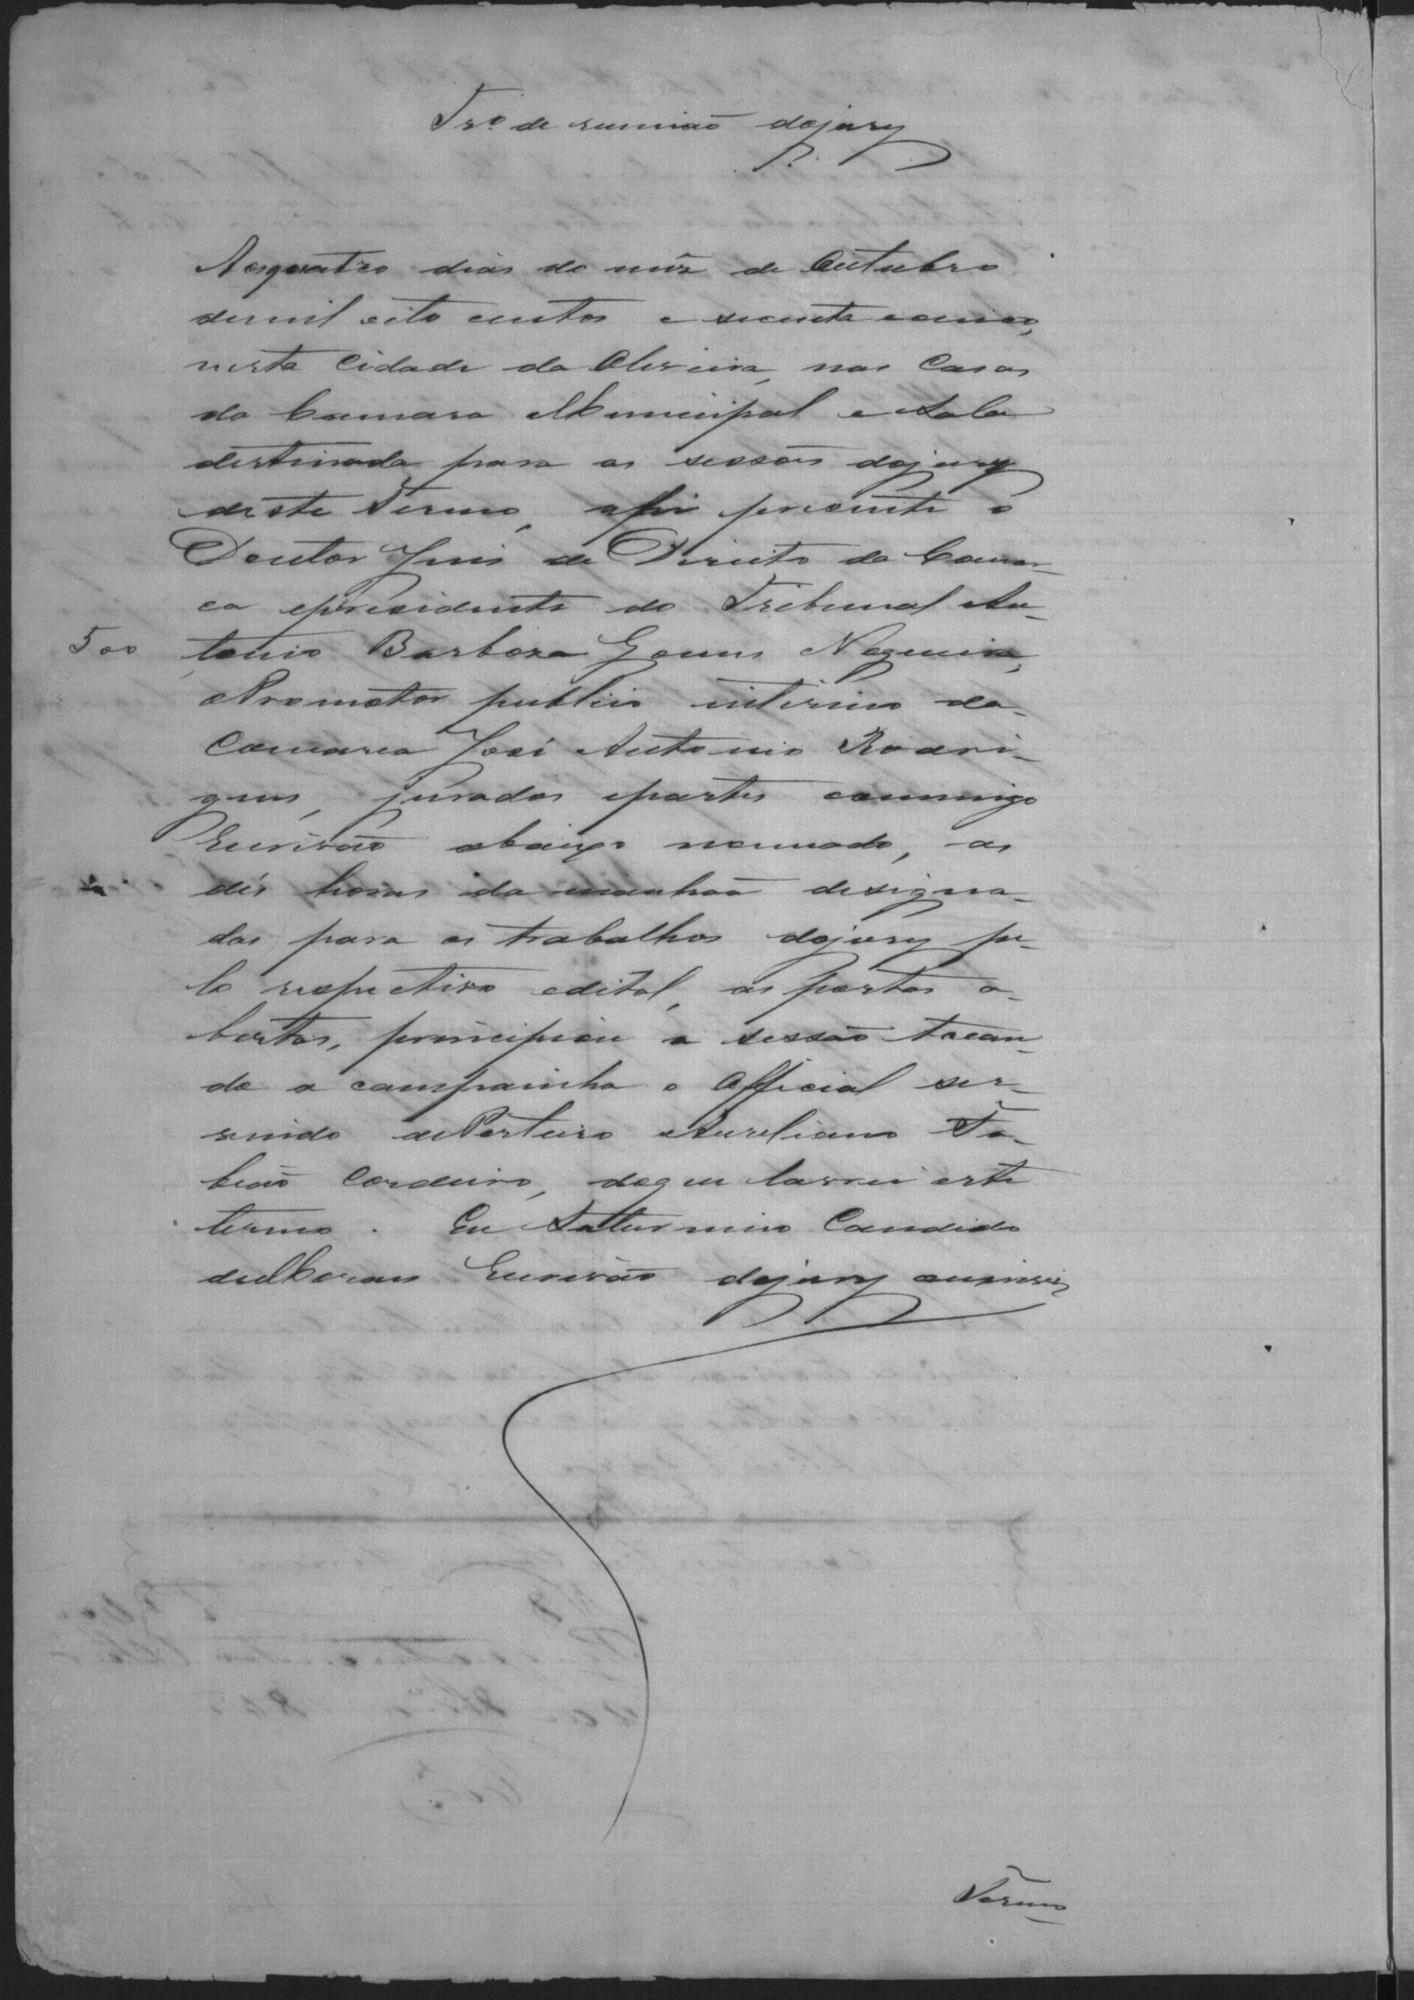 Tr.º de reunião dojury
Aosquatro dias do mêz de Outubro
demil oito centos e secenta ecinco,
nesta Cidade da Oliveira, nas Casas
da Camara Municipal e Sala
destinada para as sessões dojury
deste Termo, ahi presente o
Doutor Juis de Direito da Comar-
ca epresidente do Tribunal An-
500 tonio Barboza Gomes Nogueira,
Promotor publico interino da
Comarca José Antonio Rodri-
gues, jurados epartes commigo
Escrivão abaixo nomeado, as
dés horas da manhaã designa-
das para os trabalhos dojury pe-
lo respectivo edital, as portas a-
bertas, principiou a sessão tocan-
do a campainha o Official ser-
vindo dePorteiro Aureliano
Cordeiro, doque lavrei este
termo. Eu Saturnino Candido
deMoraes Escrivão dojury oescrevi
Termo